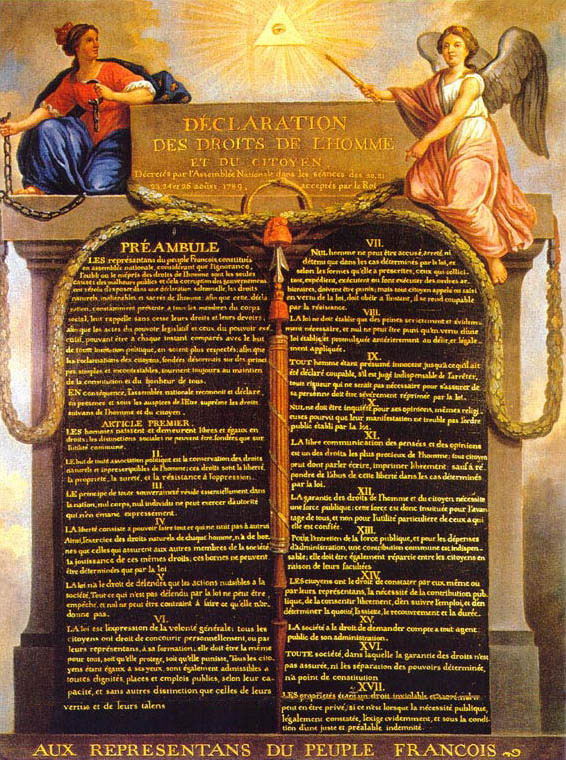 DÉCLARATION
DES DROITS DE L'HOMME
ET DU CITOYEN,
Décretés par l'Assemblée Nationale dans les séances des 20, 21
23, 24 et 26 août 1789, acceptés par le Roi
PRÉAMBULE
LES représentans du peuple François, constitués
en assemblée nationale, considérant que l'ignorance,
l'oubli ou le mépris des droits de l'homme sont les seules
causes des malheurs publics et de la corruption des gouvernemens
ont résolu d'exposer dans une déclaration solemnelle, les droits
naturels, inaliénables et sacrés de l'homme; afin que cette décla
ration, constamment présente a tous les membres du corps
social, leur rappelle sans cesse leurs droits et leurs devoirs;
afin que les actes du pouvoir législatif et ceux du pouvoir exé
cutif, pouvant être a chaque instant comparés avec le but
de toute institution politique, en soient plus respectés; afin que
les reclamations des citoyens, fondées désormais sur des princi
pes simples et incontestables, tournent toujours au maintien
de la constitution et du bonheur de tous.
EN conséquence, l'assemblée nationale reconnoit et déclare,
en presence et sous les auspices de l'Etre suprême les droits
suivans de l'homme et du citoyen.
ARTICLE PREMIER.
LES hommes naissent et demeurent libres et égaux en
droits; les distinctions sociales ne peuvent être fondées que sur
l'utilité commune.
II.
LE but de toute association politique est la conservation des droits
naturels et imprescriptibles de l'homme; ces droits sont la liberté,
la propriété, la sureté, et la résistance à l'oppression.
III.
LE principe de toute souveraineté réside essentiellement dans
la nation, nul corps, nul individu ne peut exercer d'autorité
qui n'en émane expressément.
IV.
LA liberté consiste a pouvoir faire tout ce qui ne nuit pas à autrui
Ainsi, l'exercice des droits naturels de chaque homme, n'a de bor
nes que celles qui assurent aux autres membres de la société
la jouissance de ces mêmes droits; ces bornes ne peuvent
être déterminées que par la loi
V.
LA loi n'a le droit de défendre que les actions nuisibles à la
société. Tout ce qui n'est pas défendu par la loi ne peut être
empêché, et nul ne peut être contraint à faire ce qu'elle n'or
donne pas.
VI.
LA loi est l'expression de la volonté générale; tous les
citoyens ont droit de concourir personnellement, ou par
leurs représentans, à sa formation; elle doit être la même
pour tous, soit qu'elle protege, soit qu'elle punisse. Tous les cito
yens étant égaux à ses yeux, sont également admissibles à
toutes dignités, places et emplois publics, selon leur ca
pacité, et sans autres distinction que celles de leurs
vertus et de leurs talens
VII.
NUL homme ne peut être accusé, arreté, ni
détenu que dans les cas déterminés par la loi, et
selon les formes qu'elle a prescrites, ceux qui sollici
tent, expédient, exécutent ou font exécuter des ordres ar
bitraires, doivent être punis; mais tout citoyen appelé ou saisi
en vertu de la loi, doit obéir a l'instant, il se rend coupable
par la résistance.
VIII.
LA loi ne doit établir que des peines strictement et évidem
ment nécessaire, et nul ne peut être puni qu'en vertu d'une
loi établie et promulguée antérierement au délit, et légale
ment appliquée.
IX.
TOUT homme étant présumé innocent jusqu'a ce qu'il ait
été déclaré coupable, s'il est jugé indispensable de l'arrêter,
toute rigueur qui ne serait pas nécessaire pour s'assurer de
sa personne doit être sévèrement réprimée par la loi.
X.
NUL ne doit être inquiété pour ses opinions, mêmes religi
euses pourvu que leur manifestation ne trouble pas l'ordre
public établi par la loi.
XI.
LA libre communication des pensées et des opinions
est un des droits les plus precieux de l'homme; tout citoyen
peut dont parler écrire, imprimer librement sauf à ré
pondre de l'abus de cette liberté dans les cas déterminés
par la loi.
XII.
LA garantie des droits de l'homme et du citoyen nécessite
une force publique; cette force est donc instituée pour l'avan
tage de tous, et non pour l'utilité particuliere de ceux a qui
elle est confiée.
XIII.
POUR l'entretien de la force publique, et pour les dépenses
d'administration, une contribution commune est indispen
sable; elle doit être également répartie entre les citoyens en
raison de leurs facultées
XIV.
LES citoyens ont le droit de constater par eux même ou
par leurs représentans, la nécessité de la contribution pub
lique, de la consentir librement, d'en suivre l'emploi, et d'en
déterminer la quotité, l'assiette, le recouvrement et la durée.
XV.
LA société a le droit de demander compte a tout agent
public de son administration.
XVI.
TOUTE société, dans laquelle la garantie des droits n'est
pas assurée, ni les séparation des pouvoirs déterminée,
n'a point de constitution
XVII.
LES propriétés étant un droit inviolable et sacré, nul ne
peut en être privé, si ce n'est lorsque la nécessité publique,
légalement constatée, l'exige evidemment, et sous la condi
tion d'une juste et préalable indemnité.
AUX REPRESENTANS DU PEUPLE FRANCOIS